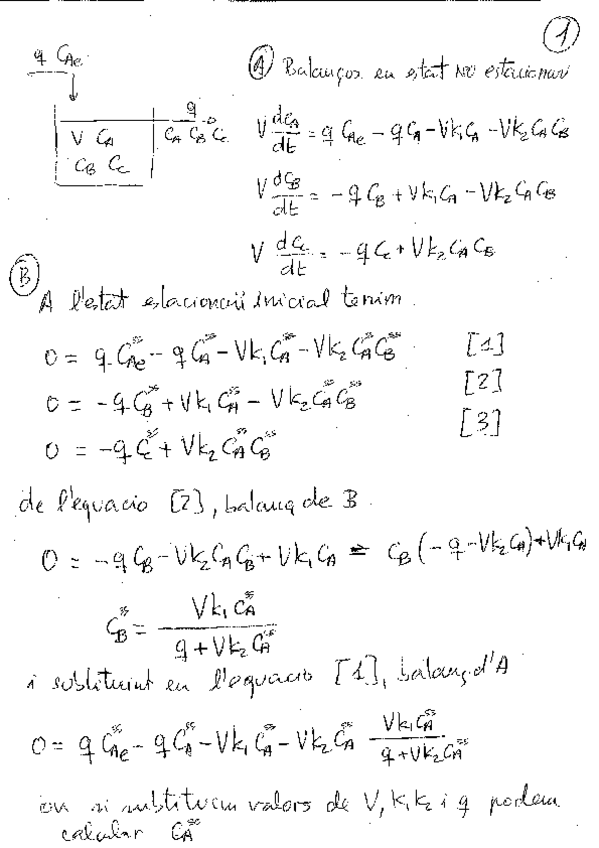 1
q C_Ae
q
V C_A
C_B C_C
C_A C_B C_C
A Balanços en estat NO estacionari
V dC_A/dt = q C_Ae - q C_A - V k_1 C_A - V k_2 C_A C_B
V dC_B/dt = - q C_B + V k_1 C_A - V k_2 C_A C_B
V dC_C/dt = - q C_C + V k_2 C_A C_B
B
A l'estat estacionari inicial tenim.
0 = q C_Ae^ss - q C_A^ss - V k_1 C_A^ss - V k_2 C_A^ss C_B^ss [1]
0 = - q C_B^ss + V k_1 C_A^ss - V k_2 C_A^ss C_B^ss [2]
0 = - q C_C^ss + V k_2 C_A^ss C_B^ss [3]
de l'equacio [2], balanç de B.
0 = - q C_B - V k_2 C_A C_B + V k_1 C_A = C_B (- q - V k_2 C_A) + V k_1 C_A
C_B^ss = V k_1 C_A^ss / q + V k_2 C_A^ss
i substituint en l'equacio [1], balanç d'A
0 = q C_Ae^ss - q C_A^ss - V k_1 C_A^ss - V k_2 C_A^ss V k_1 C_A^ss / q + V k_2 C_A^ss
on si substituim valors de V, k_1 k_2 i q podem
calcular C_A^ss